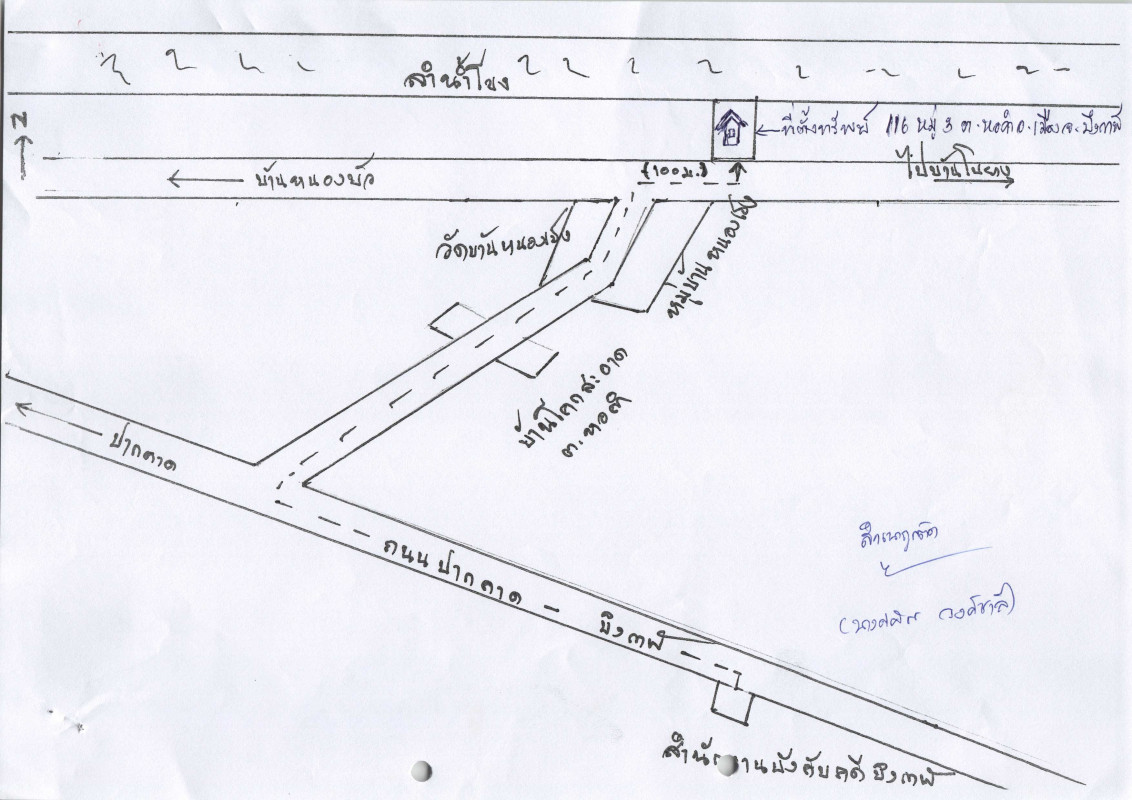 ลำน้ำโขง
N
ที่ตั้งทรัพย์ 116 หมู่ 3 ต.หอคำ อ.เมือง จ.บึงกาฬ
ไปบ้านโนยาง
บ้านหนองบัว
100 ม.
วัดบ้านหนองเข็ง
หมู่บ้านหนองเข็ง
บ้านโคกสะอาด
ต.หอคำ
ปากคาด
ถนน ปากคาด - บึงกาฬ
สำเนาถูกต้อง
สำนักงานบังคับคดีบึงกาฬ